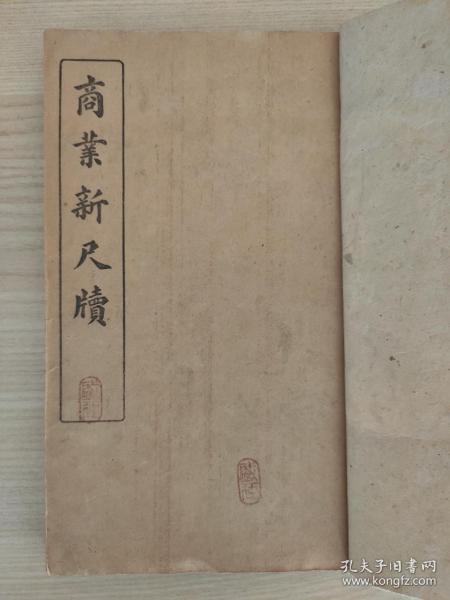 商業新尺牘
孔夫子旧书网
www.kongfz.com